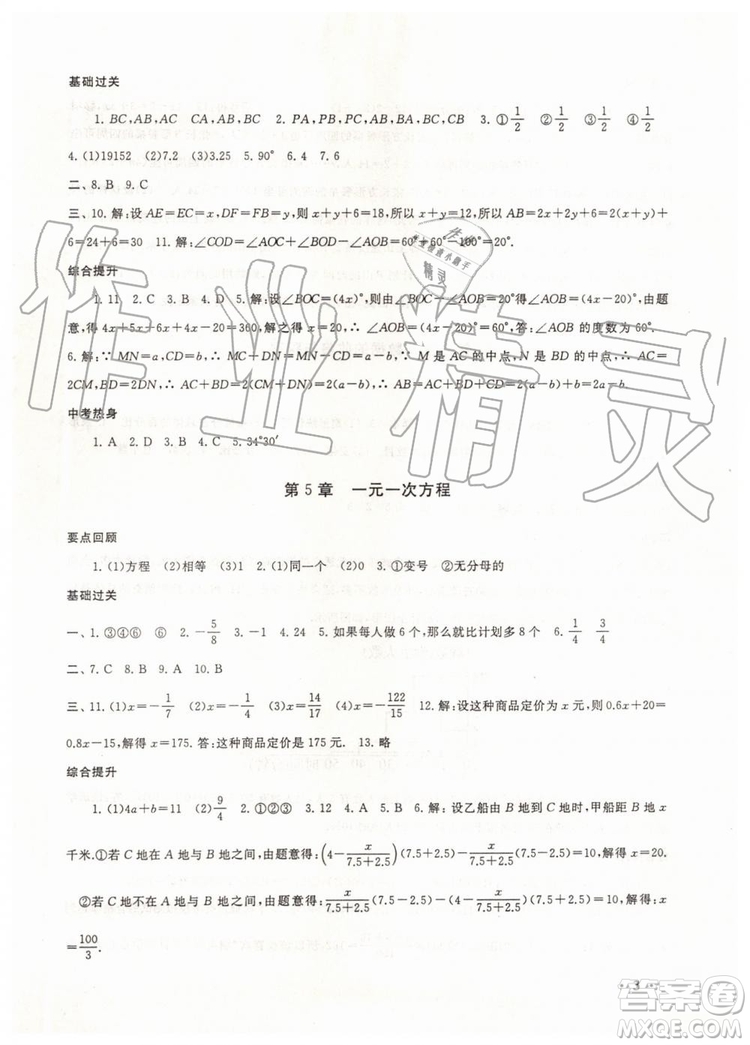 基础过关
1. BC,AB,AC CA,AB,BC 2. PA,PB,PC,AB,BA,BC,CB 3. ①1/2 ②1/2 ③1/2
4. (1)19152 (2)7.2 (3)3.25 5. 90° 6. 4 7. 6
二、8. B 9. C
三、10. 解:设 AE=EC=x,DF=FB=y,则 x+y+6=18,所以 x+y=12,所以 AB=2x+2y+6=2(x+y)+
6=24+6=30 11. 解:∠COD=∠AOC+∠BOD-∠AOB=60°+60°-100°=20°.
综合提升
1. 11 2. C 3. D 4. D 5. 解:设∠BOC=(4x)°,则由题意得∠AOB=(4x-20)°,∠AOD=(4x-20)°,由题
意,得 4x+5x+6x+4x-20=360,解之得 x=20,∴∠AOB=(4x-20)°=60°,答:∠AOB 的度数为 60°.
6. 解:∵MN=a,CD=b,∴MC+DN=MN-CD=a-b,∵M 是 AC 的中点,N 是 BD 的中点,∴AC=
2CM,BD=2DN,∴AC+BD=2(MC+DN)=2(a-b),∴AB=AC+BD+CD=2(a-b)+b=2a-b.
中考热身
1. A 2. D 3. B 4. C 5. 34°30′
第 5 章 一元一次方程
要点回顾
1. (1)方程 (2)相等 (3)1 2. (1)同一个 (2)0 3. ①变号 ②无分母的
基础过关
一、1. ③④⑥ ⑥ 2. -5/8 3. -1 4. 24 5. 如果每人做 6 个,那么就比计划多 8 个 6. 1/4 3/4
二、7. C 8. B 9. A 10. B
三、11. (1)x=-1/7 (2)x=-1/4 (3)x=14/17 (4)x=-122/15 12. 解:设这种商品定价为 x 元,则 0.6x+20=
0.8x-15,解得 x=175. 答:这种商品定价是 175 元. 13. 略
综合提升
1. (1)4a+b=11 (2)9/4 2. ①②③ 3. 12 4. A 5. B 6. 解:设乙船由 B 地到 C 地时,甲船距 B 地 x
千米.①若 C 地在 A 地与 B 地之间,由题意得:(4-x/(7.5+2.5))(7.5-2.5)-x/(7.5+2.5)(7.5-2.5)=10.解得:x=20.
②若 C 地不在 A 地与 B 地之间,由题意得:x/(7.5+2.5)(7.5-2.5)-(4-x/(7.5+2.5))(7.5-2.5)=10.解得:x
=100/3.
3
作业精灵
答案圈
MXQE.COM